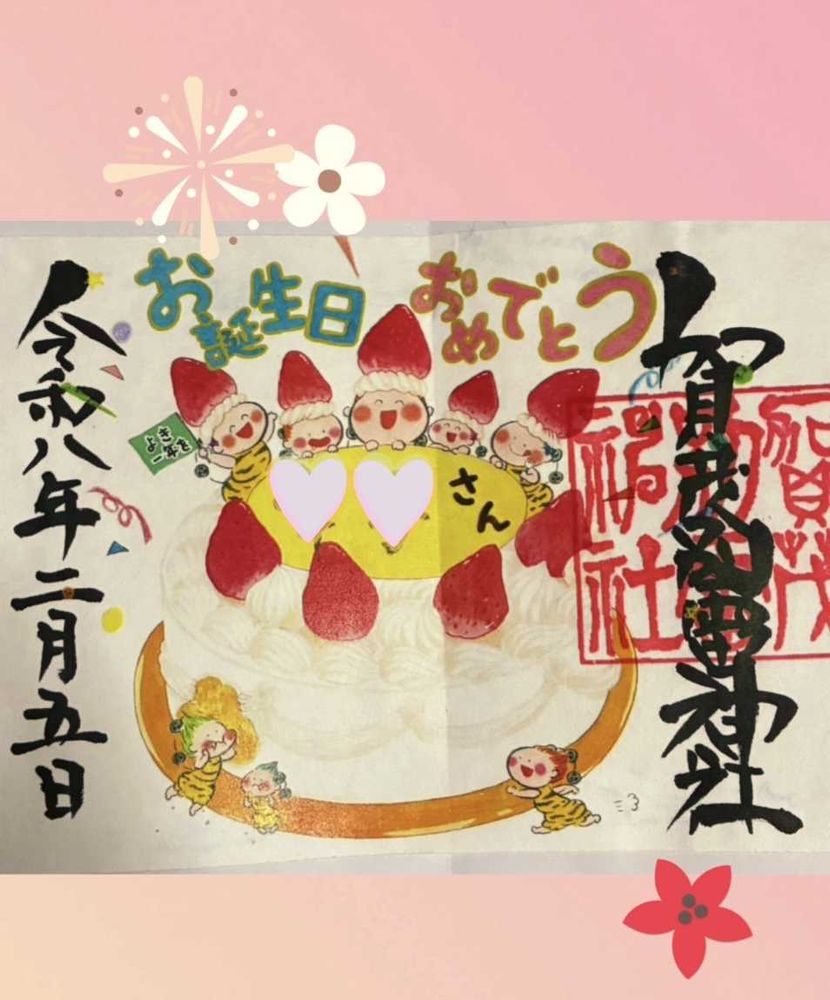 お誕生日おめでとう
賀茂別雷神社
賀茂
別雷
神社
よき
一年を
さん
令和八年二月五日